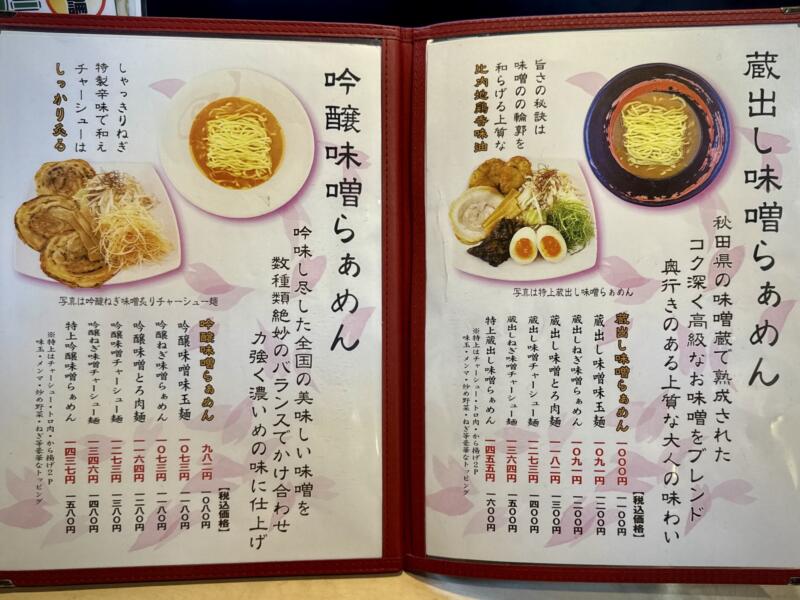 蔵出し味噌らぁめん
秋田県の味噌蔵で熟成された
コク深く高級なお味噌をブレンド
奥行きのある上質な大人の味わい
旨さの秘訣は
味噌のの輪郭を
和らげる上質な
比内地鶏香味油
写真は特上蔵出し味噌らぁめん
【税込価格】
蔵出し味噌らぁめん 一〇〇〇円 一一〇〇円
蔵出し味噌味玉麺 一〇九一円 一二〇〇円
蔵出しねぎ味噌らぁめん 一〇九一円 一二〇〇円
蔵出し味噌とろ肉麺 一一八二円 一三〇〇円
蔵出し味噌チャーシュー麺 一二七三円 一四〇〇円
蔵出しねぎ味噌チャーシュー麺 一三六四円 一五〇〇円
特上蔵出し味噌らぁめん 一四五五円 一六〇〇円
※特上はチャーシュー・トロ肉・から揚げ2P
味玉・メンマ・炒め野菜・ねぎ等豪華なトッピング
吟醸味噌らぁめん
吟味し尽した全国の美味しい味噌を
数種類絶妙のバランスでかけ合わせ
力強く濃いめの味に仕上げ
しゃっきりねぎ
特製辛味で和え
チャーシューは
しっかり炙る
写真は吟醸ねぎ味噌炙りチャーシュー麺
【税込価格】
吟醸味噌らぁめん 九八二円 一〇八〇円
吟醸味噌味玉麺 一〇七三円 一一八〇円
吟醸ねぎ味噌らぁめん 一〇七三円 一一八〇円
吟醸味噌とろ肉麺 一一六四円 一二八〇円
吟醸味噌チャーシュー麺 一二七三円 一三八〇円
吟醸ねぎ味噌チャーシュー麺 一三四六円 一四八〇円
特上吟醸味噌らぁめん 一四三七円 一五八〇円
※特上はチャーシュー・トロ肉・から揚げ2P
味玉・メンマ・炒め野菜・ねぎ等豪華なトッピング